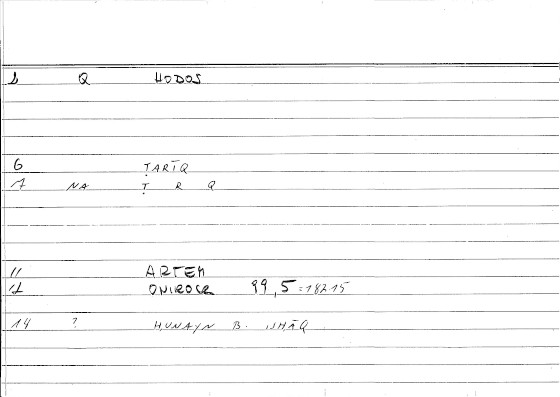 1 Q HODOS
6 ṬARĪQ
7 NA Ṭ R Q
11 ARTEM
12 ONIROCR 99,5=18215
14 ? ḤUNAYN B. ISḤĀQ